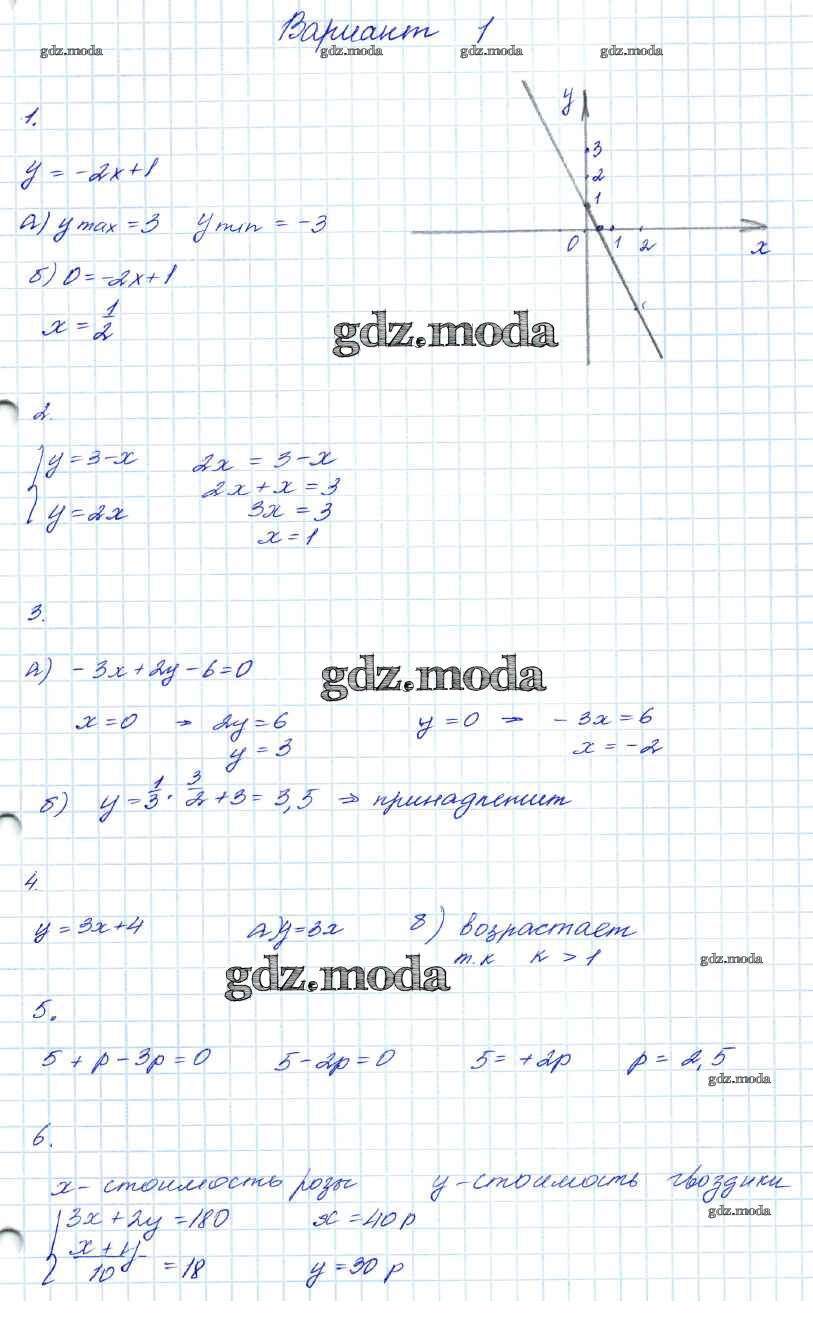 Вариант 1
gdz.moda gdz.moda gdz.moda gdz.moda
1.
y
3
2
1
0 1 2
x
y = -2x+1
а) y max = 3 y min = -3
б) 0 = -2x+1
x = 1/2
gdz.moda
2.
{ y = 3-x 2x = 3-x
2x+x = 3
y = 2x 3x = 3
x = 1
3.
а) -3x+2y-6=0
gdz.moda
x=0 → 2y=6 y=0 → -3x=6
y = 3 x = -2
б) y = 1/3 · 3/2 + 3 = 3,5 ⇒ принадлежит
4.
y = 3x+4 а) y=3x в) возрастает
т.к k > 1
gdz.moda
gdz.moda
5.
5 + p - 3p = 0 5-2p=0 5=+2p p = 2,5
gdz.moda
6.
x- стоимость розы y-стоимость гвоздики
gdz.moda
{ 3x+2y = 180 x = 40 р
x+y/10 = 18 y = 30 р